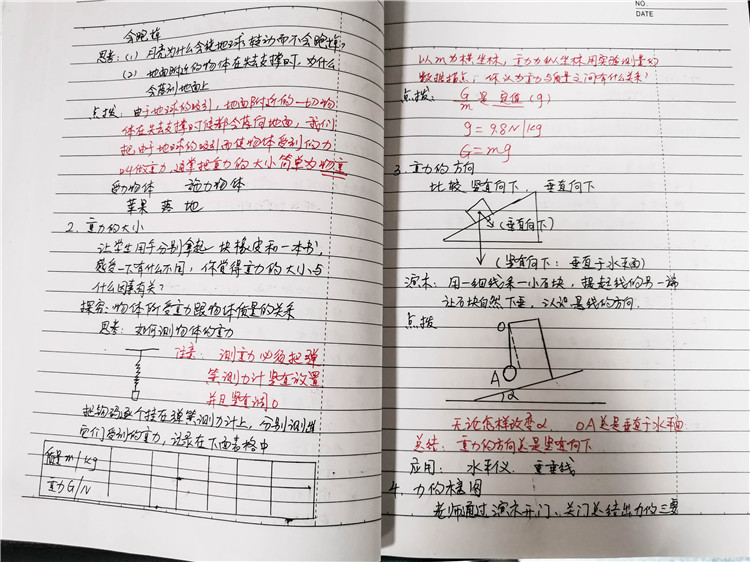 会跑掉
思考:(1) 月亮为什么会绕地球转动而不会跑掉?
(2) 地面附近的物体在失去支撑时,为什么
会落到地面上
点拨:由于地球的吸引,地面附近的一切物
体在失去支撑时候都会落向地面,我们
把由于地球的吸引而使物体受到的力
叫做重力,通常把重力的大小简单为物重
受力物体 施力物体
苹果 落 地
2. 重力的大小
让学生用手分别拿起一块橡皮和一本书,
感受一下有什么不同,你觉得重力的大小与
什么因素有关?
探究:物体所受重力跟物体质量的关系
思考:如何测物体的重力
注意:测重力必须把弹
簧测力计竖直放置
并且竖直调0
把物码逐个挂在弹簧测力计上,分别测出
它们受到的重力,记录在下面表格中
质量m/kg
重力G/N
NO.
DATE
以m为横坐标,重力为纵坐标用实验测量的
数据描点,你认为重力与质量之间有什么关系?
点拨: G/m 是定值 (g)
g = 9.8N/kg
G = mg
3. 重力的方向
比较 竖直向下, 垂直向下
(垂直向下)
(竖直向下:垂直于水平面)
演示:用一细线系一小石块,提起线的另一端
让石块自然下垂,认识是线的方向.
点拨
O
A
α
无论怎样改变α, OA总是垂直于水平面
总结:重力的方向总是竖直向下
应用: 水平仪 重垂线
4. 力的示意图
老师通过演示开门、关门总结出力的三要